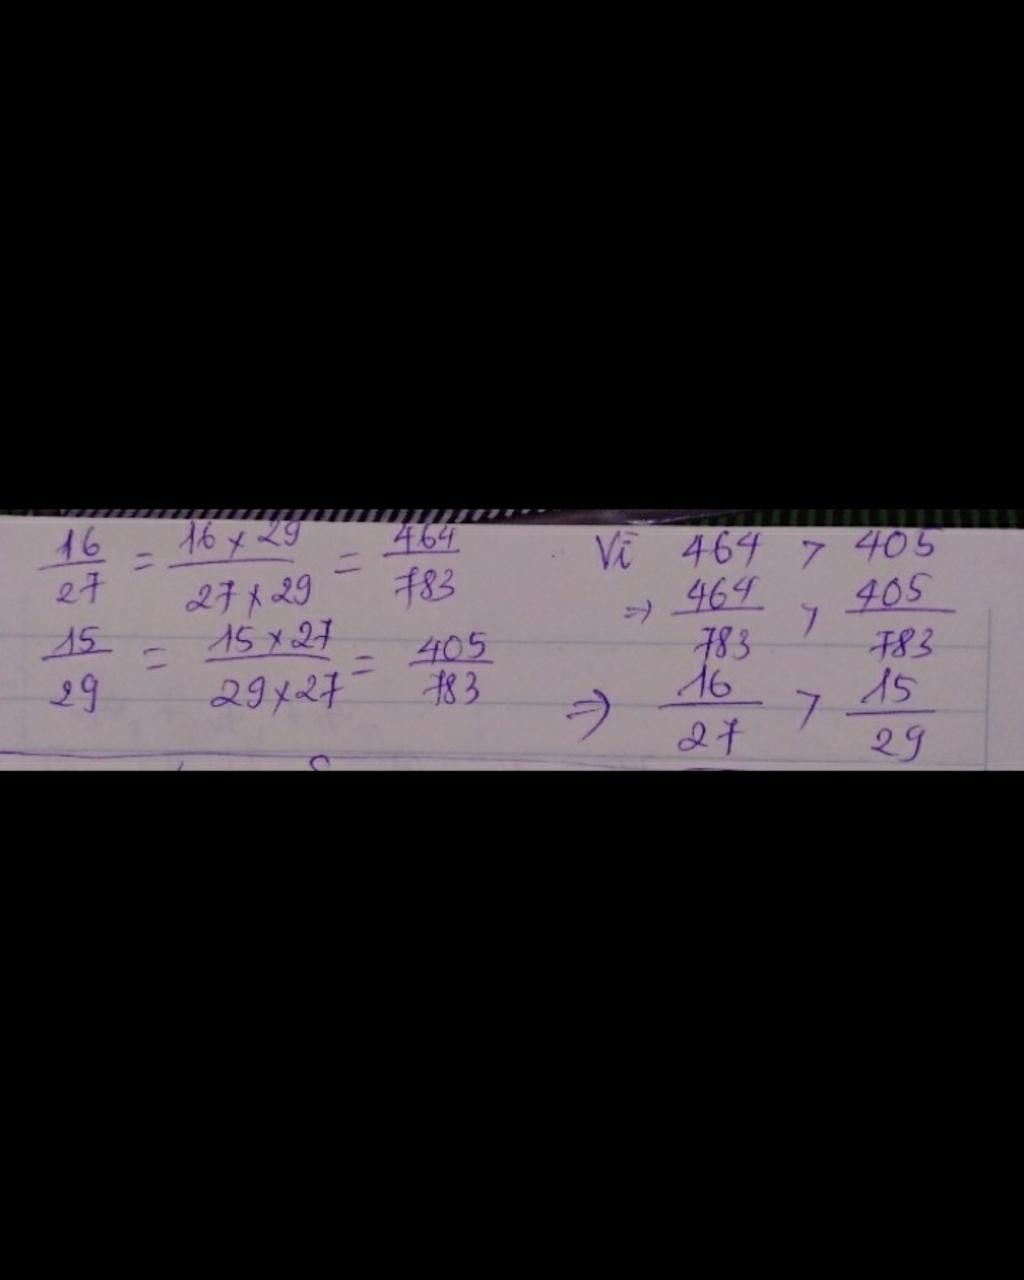 16/27 = 16 x 29 / 27 x 29 = 464/783
15/29 = 15 x 27 / 29 x 27 = 405/783
Vì 464 > 405
=> 464/783 > 405/783
=> 16/27 > 15/29